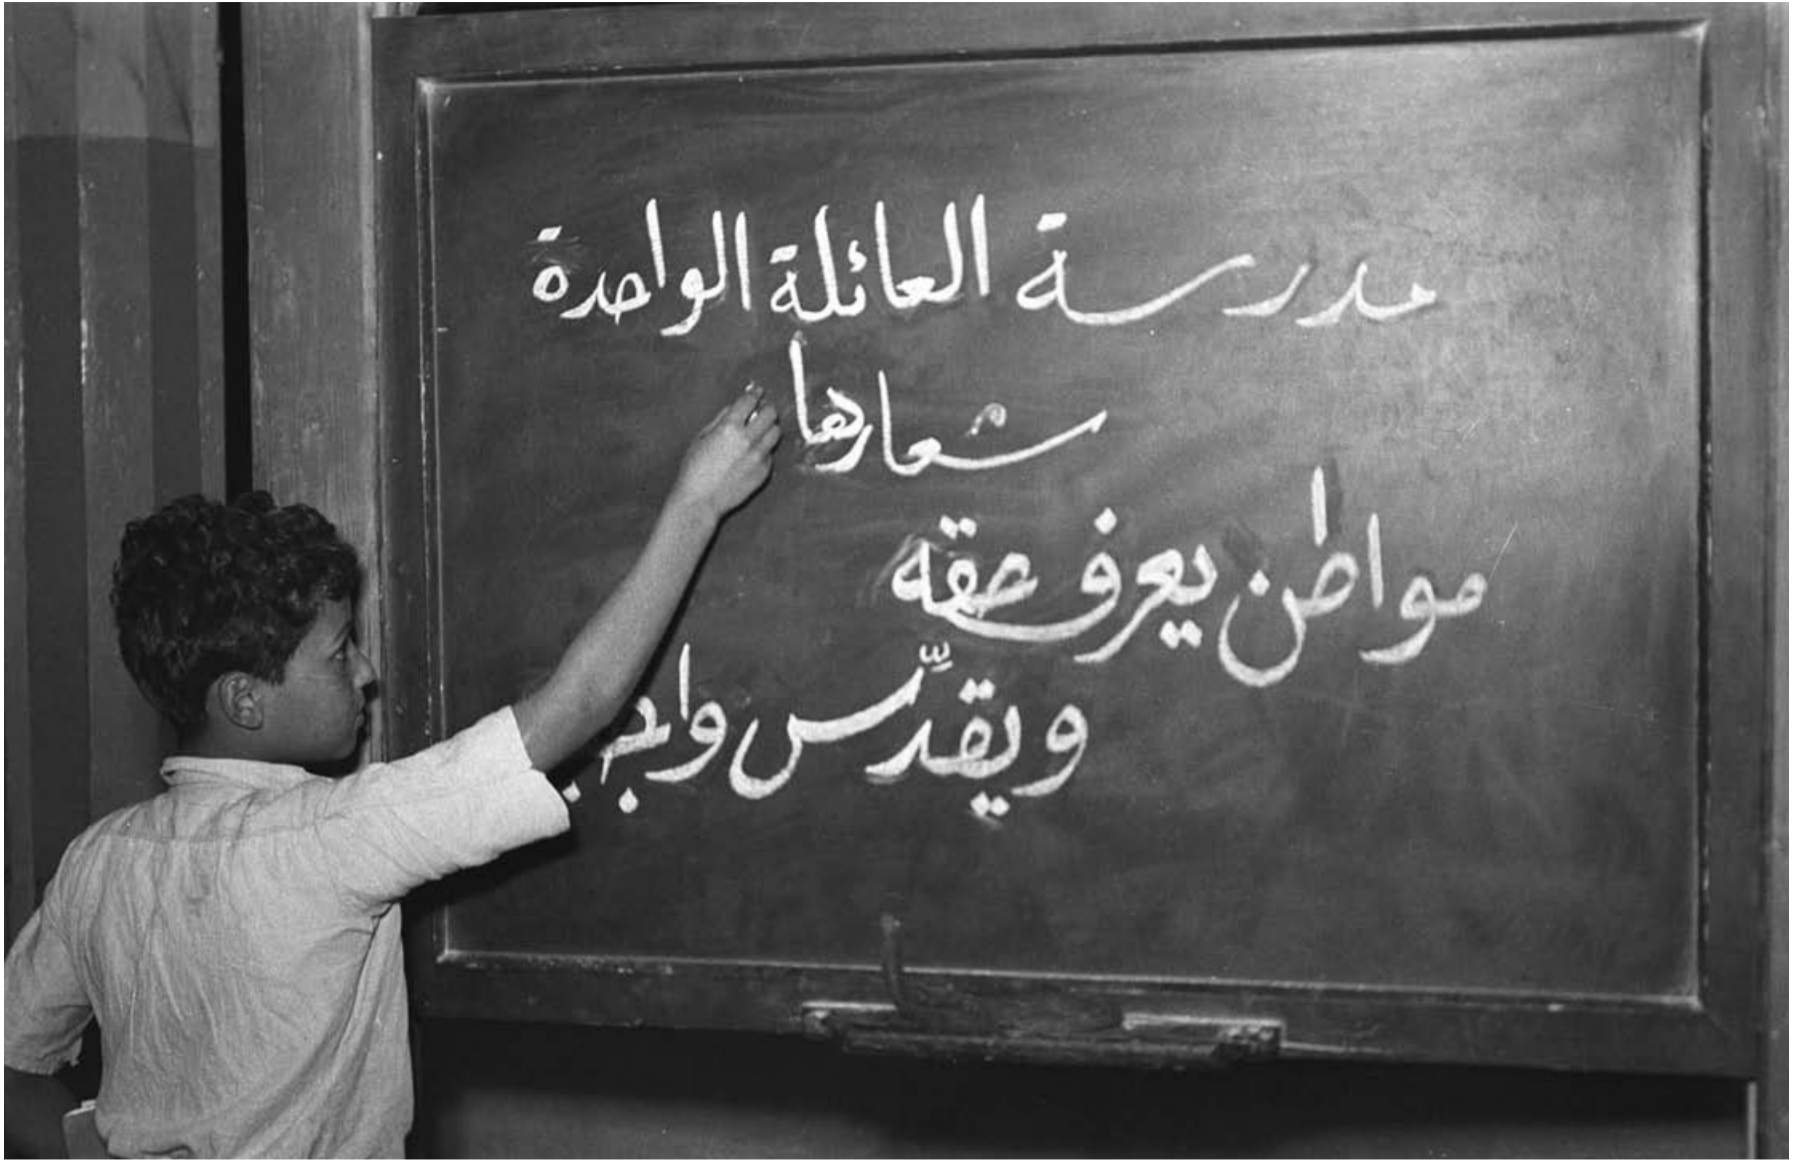 مدرسة العائلة الواحدة
شعارها
مواطن يعرف حقه
ويقدّس